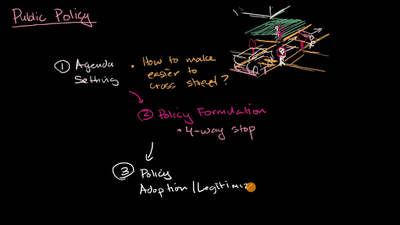 Public Policy
① Agenda Setting
• How to make easier to cross street?
② Policy Formulation
• 4-way stop
③ Policy
Adoption/Legitimiz